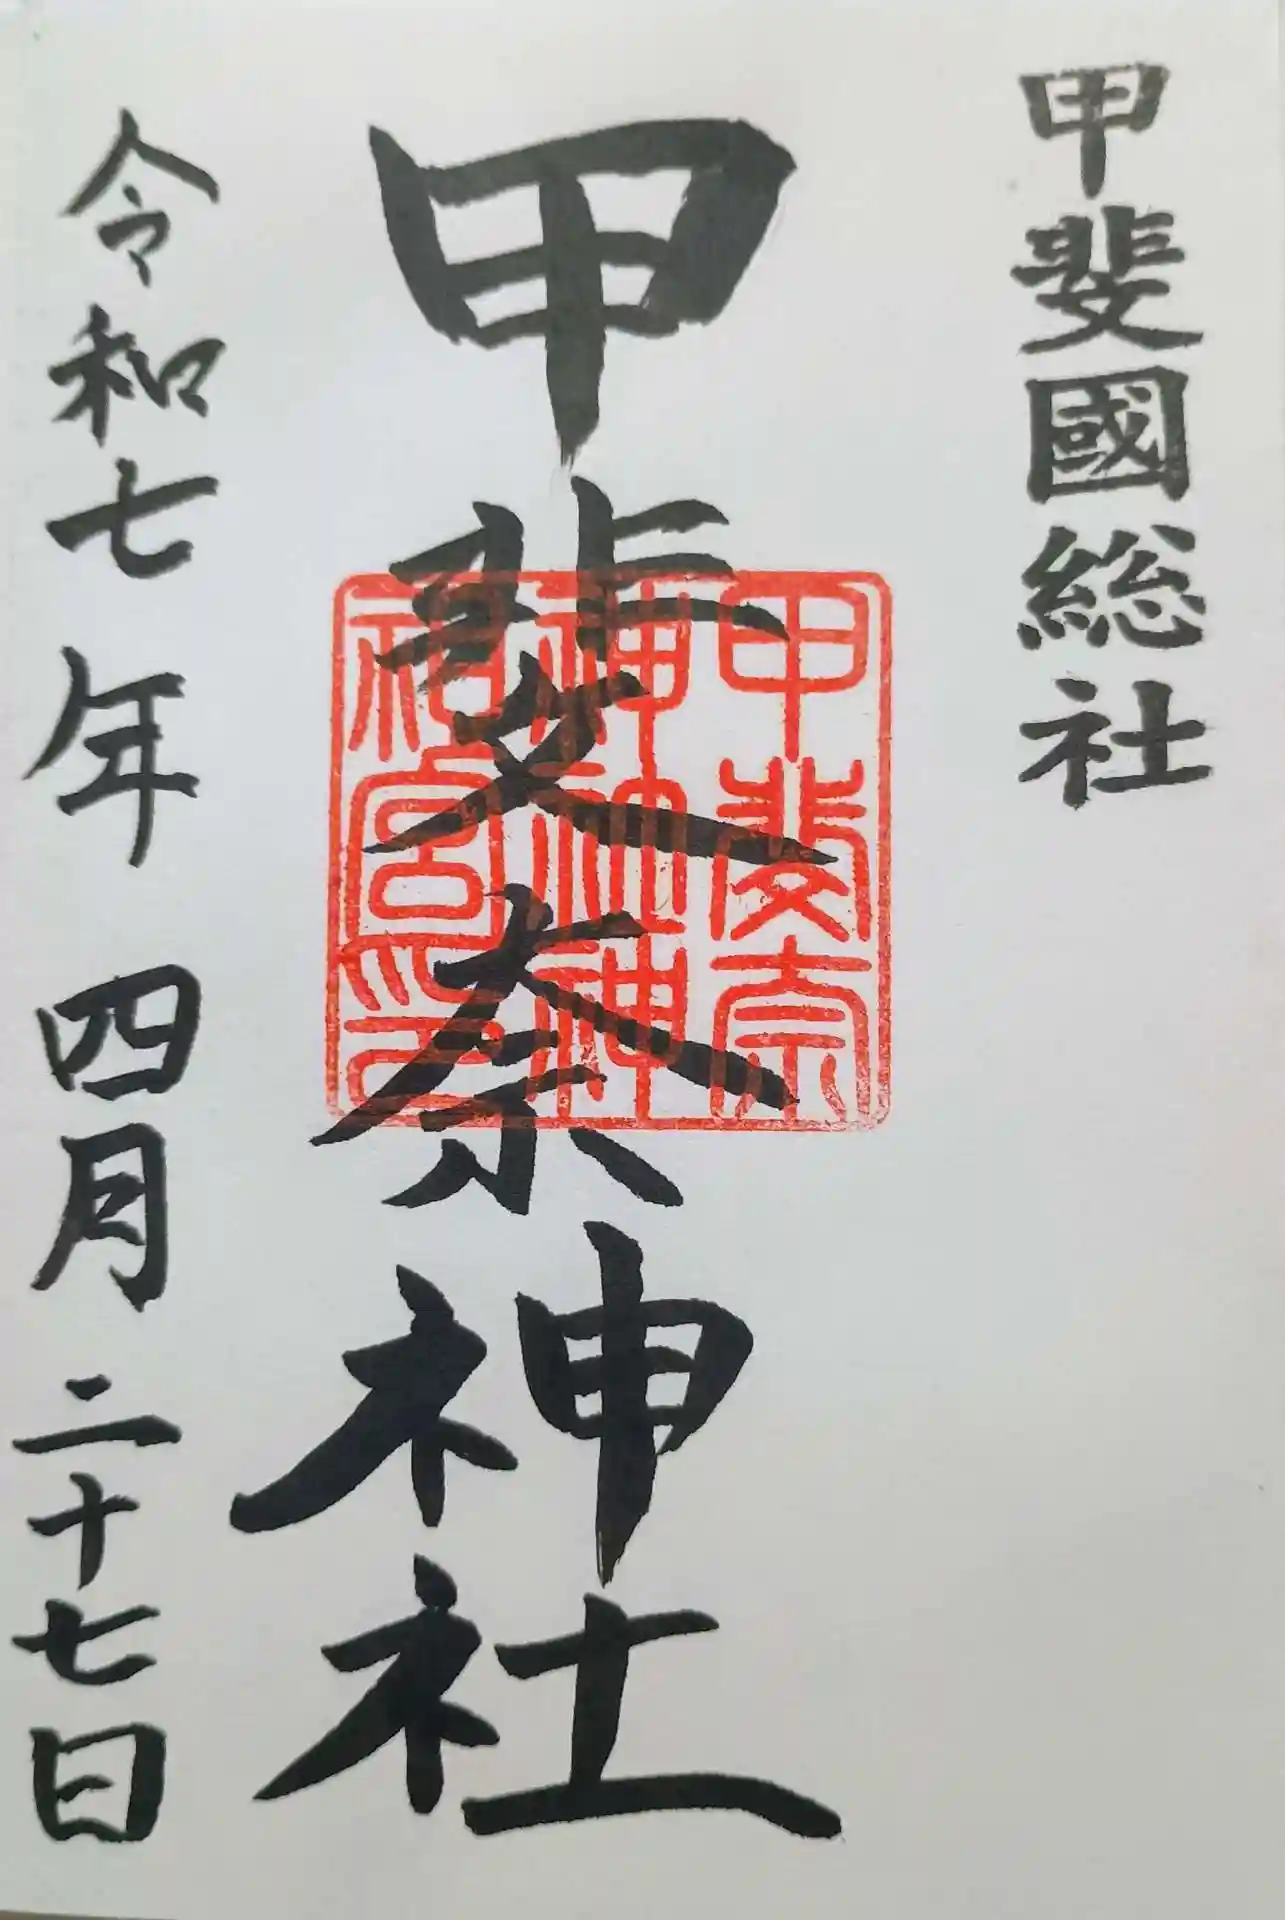 甲斐國総社
甲斐奈神社
甲斐奈
神社神
祠宮印
令和七年 四月二十七日